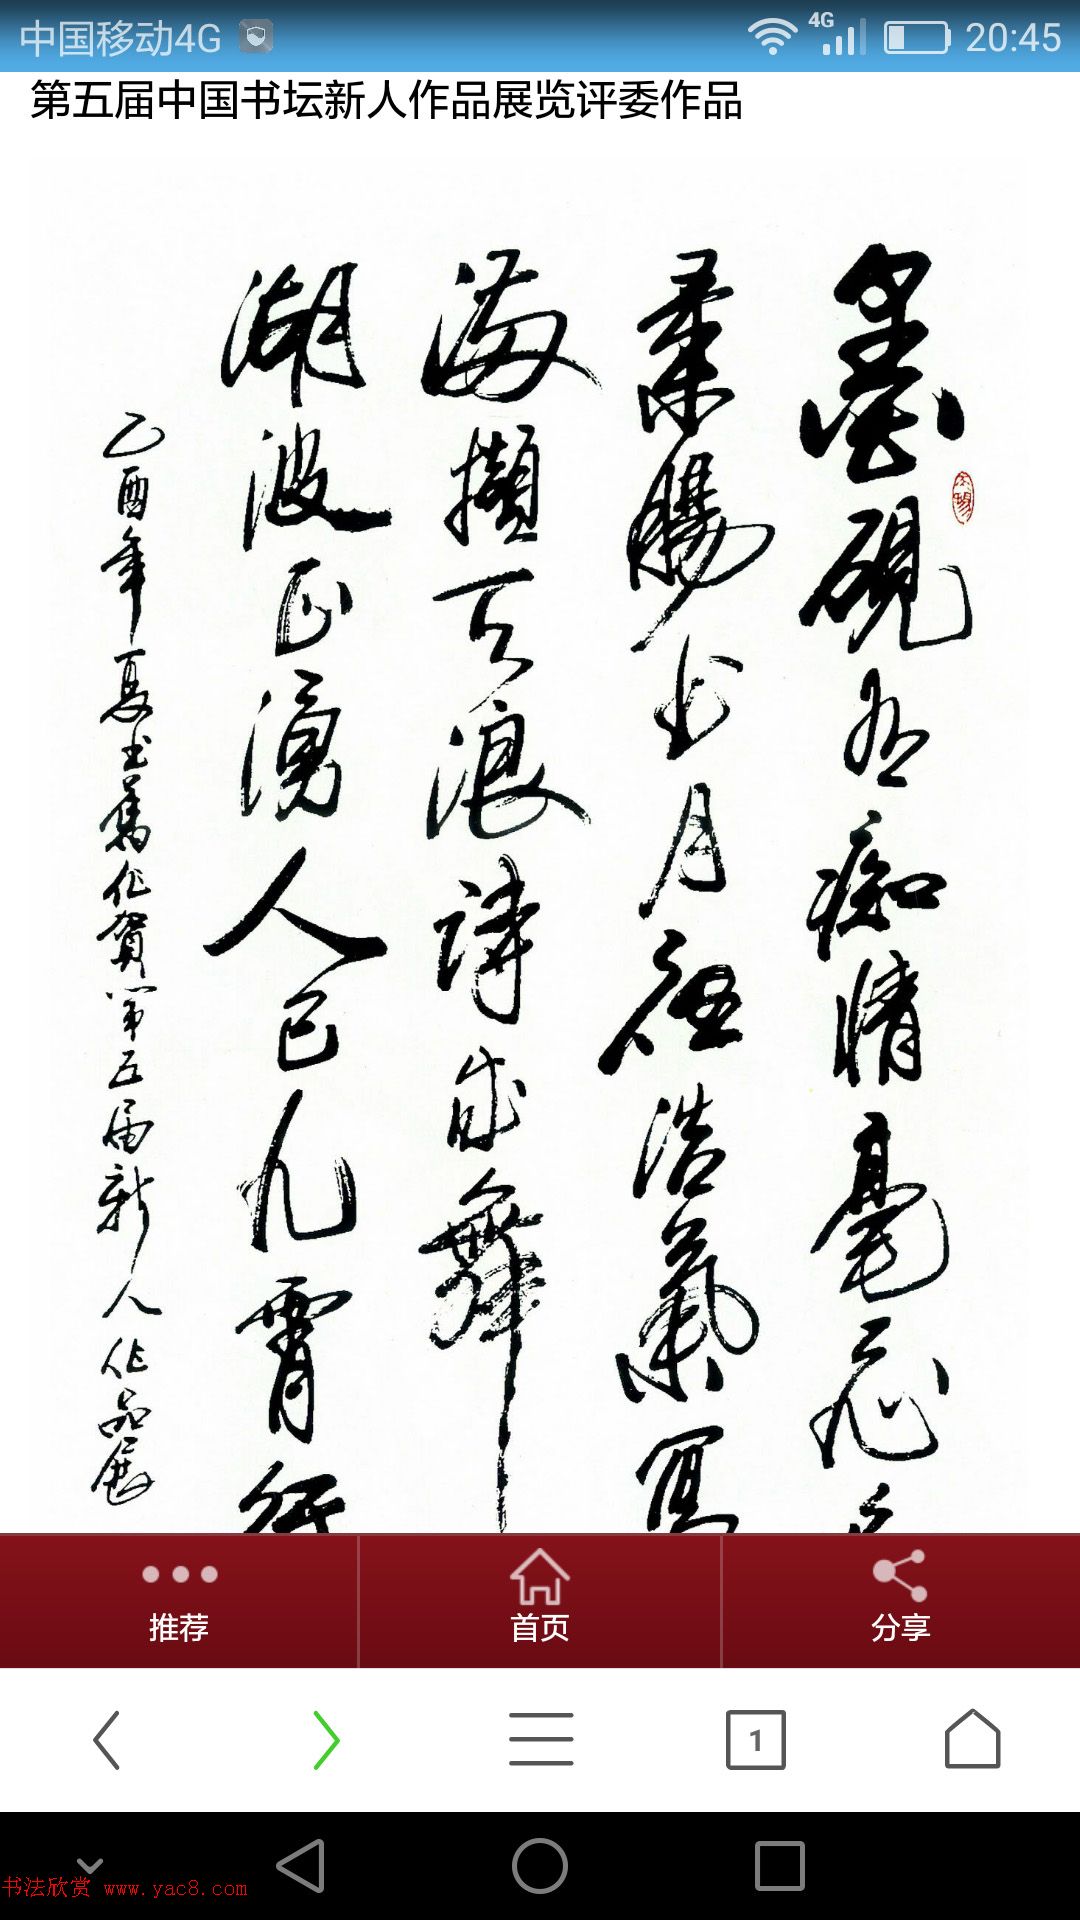 中国移动4G
4G
20:45
第五届中国书坛新人作品展览评委作品
墨砚有痴情毫
柔肠书月夜浩气写
海横天浪诗成舞
潮波正涌人已九霄行
乙酉年夏书旧作贺第五届新人作品展
推荐
首页
分享
1
书法欣赏 www.yac8.com